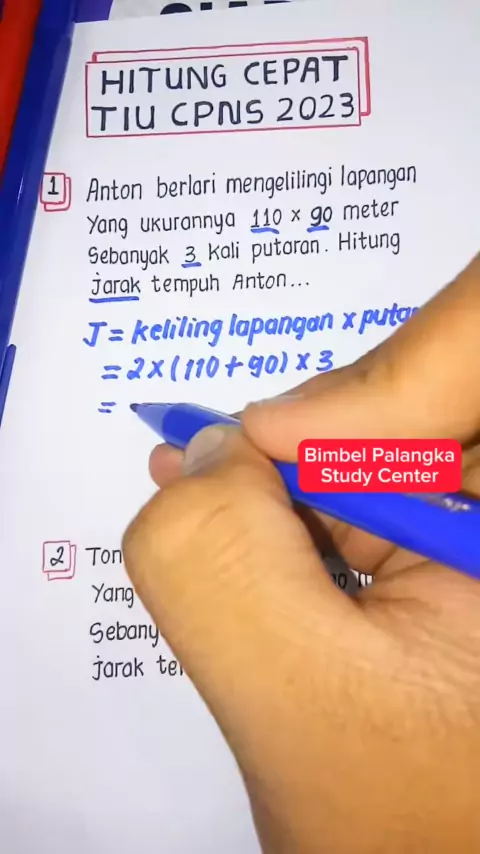 HITUNG CEPAT
TIU CPNS 2023
1 Anton berlari mengelilingi lapangan
Yang ukurannya 110 x 90 meter
Sebanyak 3 kali putaran. Hitung
jarak tempuh Anton...
J = keliling lapangan x
= 2 x (110 + 90) x 3
=
Bimbel Palangka
Study Center
2
Yang